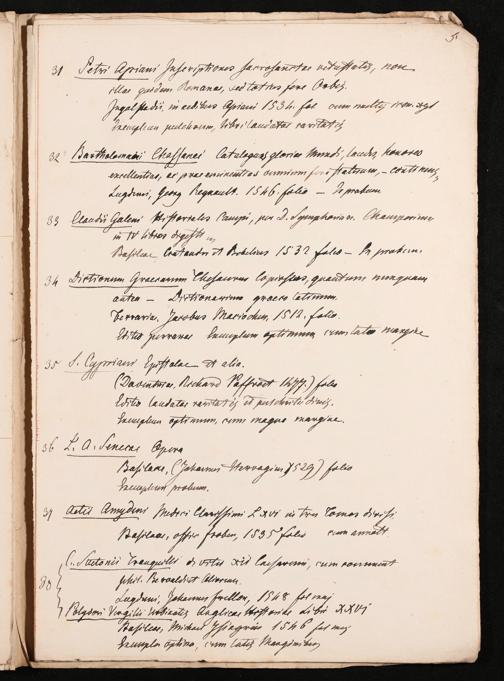 5
31 Petri Apriani Inscriptiones sacrosanctae vetustatis, non
illae quidem Romanae, sed totius fere Orbis.
Ingolstadii, in aedibus Apriani 1534. fol cum multis
Exemplum pulchrum, libri laudatae raritatis
32 Bartholomaei Chassanei Catalogus gloriae Mundi, laudes, honores
excellentias, ac praeeminentias omnium fere statuum, – continens,
Lugduni, Georg Regnault. 1546. folio –
33 Claudii Galeni Historiales Campi, per D. Symphorianum Champerium
in IV libros digesti
Basileae Cratandri et Bebelius 1532 folio –
34 Dictionum Graecarum Thesaurus Copiosus, quantum nunquam
antea – Dictionarium graeco latinum
Ferrariae, Jacobus Maciochus, 1510. folio.
Editio perrara. Exemplum optimum cum latis margine
35 S. Cypriani Epistolae et alia.
(Daventriae. Richard Paffraet 1477.) folio
Editio laudatae raritatis et pulchritudinis.
Exemplum optimum, cum magno margine.
36 L. A. Senecae Opera
Basileae, (Johannes Hervagius, 1529) folio
Exemplum probum.
37 Aetii Amydeni Medici Clarissimi Lxvi in tres Tomos divisi
Basileae, offic froben, 1535 folio cum annott
38 C. Suetonii Tranquilli de vitis xii Caesarum, cum comment
phil. Beroaldi et Aliorum.
Lugduni, Johannes frellon, 1548 fol maj
Polydori Vergilii Urbinatis Anglicae Historiae Libri XXVI
Basileae, Michael Isingrius 1546 fol maj
Exempla optima, cum latis Marginibus